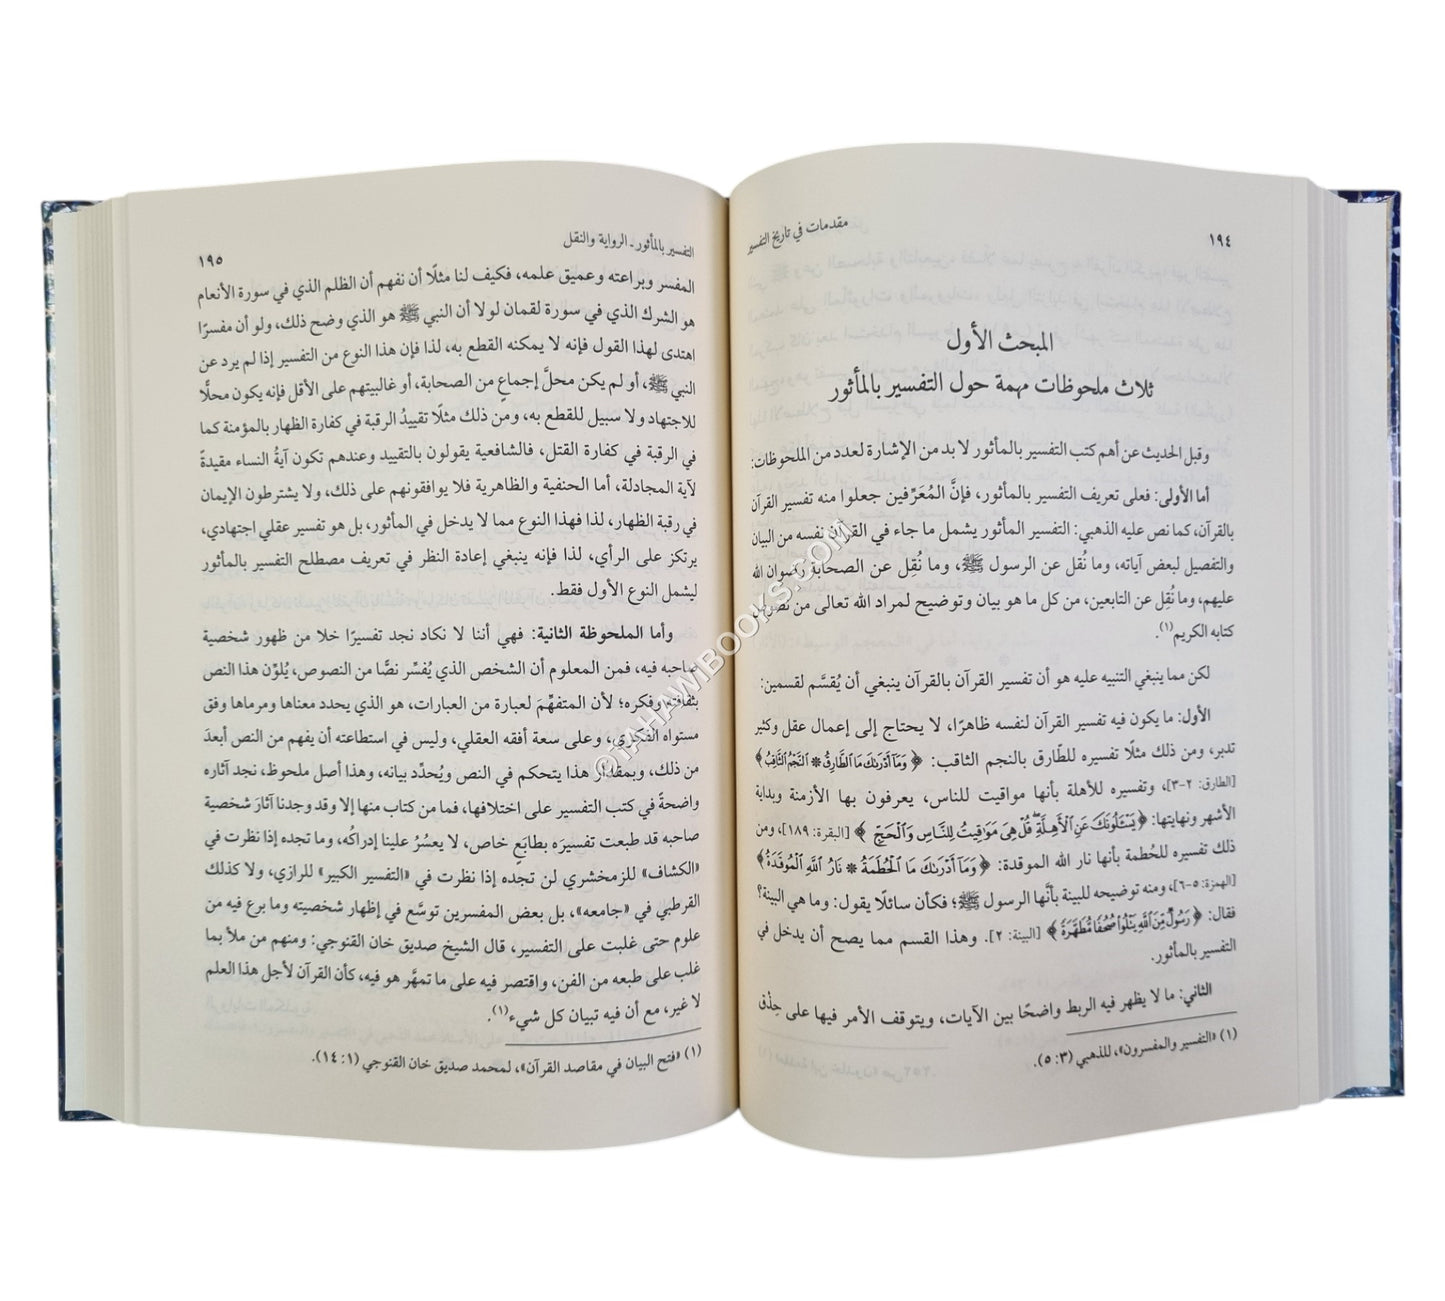 ١٩٤
مقدمات في تاريخ التفسير
المبحث الأول
ثلاث ملحوظات مهمة حول التفسير بالمأثور
وقبل الحديث عن أهم كتب التفسير بالمأثور لا بد من الإشارة لعدد من الملحوظات:
أما الأولى: فعلى تعريف التفسير بالمأثور، فإنَّ المُعَرِّفين جعلوا منه تفسير القرآن
بالقرآن، كما نص عليه الذهبي: التفسير المأثور يشمل ما جاء في القرآن نفسه من البيان
والتفصيل لبعض آياته، وما نُقل عن الرسول ﷺ، وما نُقِل عن الصحابة رضوان الله
عليهم، وما نُقِل عن التابعين، من كل ما هو بيان وتوضيح لمراد الله تعالى من نصوص
كتابه الكريم(١).
لكن مما ينبغي التنبيه عليه هو أن تفسير القرآن بالقرآن ينبغي أن يُقسَّم لقسمين:
الأول: ما يكون فيه تفسير القرآن لنفسه ظاهرًا، لا يحتاج إلى إعمال عقل وكثير
تدبر، ومن ذلك مثلًا تفسيره للطَّارق بالنجم الثاقب: ﴿وَمَآ أَدْرَىٰكَ مَا ٱلطَّارِقُ * ٱلنَّجْمُ ٱلثَّاقِبُ﴾
[الطارق: ٢-٣]، وتفسيره للأهلة بأنها مواقيت للناس، يعرفون بها الأزمنة وبداية
الأشهر ونهايتها: ﴿يَسْـَٔلُونَكَ عَنِ ٱلْأَهِلَّةِ ۖ قُلْ هِىَ مَوَٰقِيتُ لِلنَّاسِ وَٱلْحَجِّ﴾ [البقرة: ١٨٩]، ومن
ذلك تفسيره للحُطمة بأنها نار الله الموقدة: ﴿وَمَآ أَدْرَىٰكَ مَا ٱلْحُطَمَةُ * نَارُ ٱللَّهِ ٱلْمُوقَدَةُ﴾
[الهمزة: ٥-٦]، ومنه توضيحه للبينة بأنَّها الرسول ﷺ؛ فكأن سائلًا يقول: وما هي البينة؟
فقال: ﴿رَسُولٌ مِّنَ ٱللَّهِ يَتْلُوا۟ صُحُفًا مُّطَهَّرَةً﴾ [البينة: ٢]. وهذا القسم مما يصح أن يدخل في
التفسير بالمأثور.
الثاني: ما لا يظهر فيه الربط واضحًا بين الآيات، ويتوقف الأمر فيها على حِذْق
(١) «التفسير والمفسرون»، للذهبي (٣: ٥).
التفسير بالمأثور ـ الرواية والنقل
١٩٥
المفسر وبراعته وعميق علمه، فكيف لنا مثلًا أن نفهم أن الظلم الذي في سورة الأنعام
هو الشرك الذي في سورة لقمان لولا أن النبي ﷺ هو الذي وضح ذلك، ولو أن مفسرًا
اهتدى لهذا القول فإنه لا يمكنه القطع به، لذا فإن هذا النوع من التفسير إذا لم يرد عن
النبي ﷺ، أو لم يكن محلَّ إجماعٍ من الصحابة، أو غالبيتهم على الأقل فإنه يكون محلًّا
للاجتهاد ولا سبيل للقطع به، ومن ذلك مثلًا تقييدُ الرقبة في كفارة الظهار بالمؤمنة كما
في الرقبة في كفارة القتل، فالشافعية يقولون بالتقييد وعندهم تكون آيةُ النساء مقيدةً
لآية المجادلة، أما الحنفية والظاهرية فلا يوافقونهم على ذلك، ولا يشترطون الإيمان
في رقبة الظهار، لذا فهذا النوع مما لا يدخل في المأثور، بل هو تفسير عقلي اجتهادي،
يرتكز على الرأي، لذا فإنه ينبغي إعادة النظر في تعريف مصطلح التفسير بالمأثور
ليشمل النوع الأول فقط.
وأما الملحوظة الثانية: فهي أننا لا نكاد نجد تفسيرًا خلا من ظهور شخصية
صاحبه فيه، فمن المعلوم أن الشخص الذي يُفسِّر نصًّا من النصوص، يُلوِّن هذا النص
بثقافته وفكره؛ لأن المتفهِّمَ لعبارة من العبارات، هو الذي يحدد معناها ومرماها وفق
مستواه الفكري، وعلى سعة أفقه العقلي، وليس في استطاعته أن يفهم من النص أبعدَ
من ذلك، وبمقدار هذا يتحكم في النص ويُحدِّد بيانه، وهذا أصل ملحوظ، نجد آثاره
واضحةً في كتب التفسير على اختلافها، فما من كتاب منها إلا وقد وجدنا آثارَ شخصية
صاحبه قد طبعت تفسيرَه بطابَعٍ خاص، لا يعسُرُ علينا إدراكُه، وما تجده إذا نظرت في
«الكشاف» للزمخشري لن تجده إذا نظرت في «التفسير الكبير» للرازي، ولا كذلك
القرطبي في «جامعه»، بل بعض المفسرين توسَّع في إظهار شخصيته وما برع فيه من
علوم حتى غلبت على التفسير، قال الشيخ صديق خان القنوجي: ومنهم من ملأ بما
غلب على طبعه من الفن، واقتصر فيه على ما تمهَّر هو فيه، كأن القرآن لأجل هذا العلم
لا غير، مع أن فيه تبيان كل شيء(١).
(١) «فتح البيان في مقاصد القرآن»، لمحمد صديق خان القنوجي (١: ١٤).
©TAHAWIBOOKS.COM